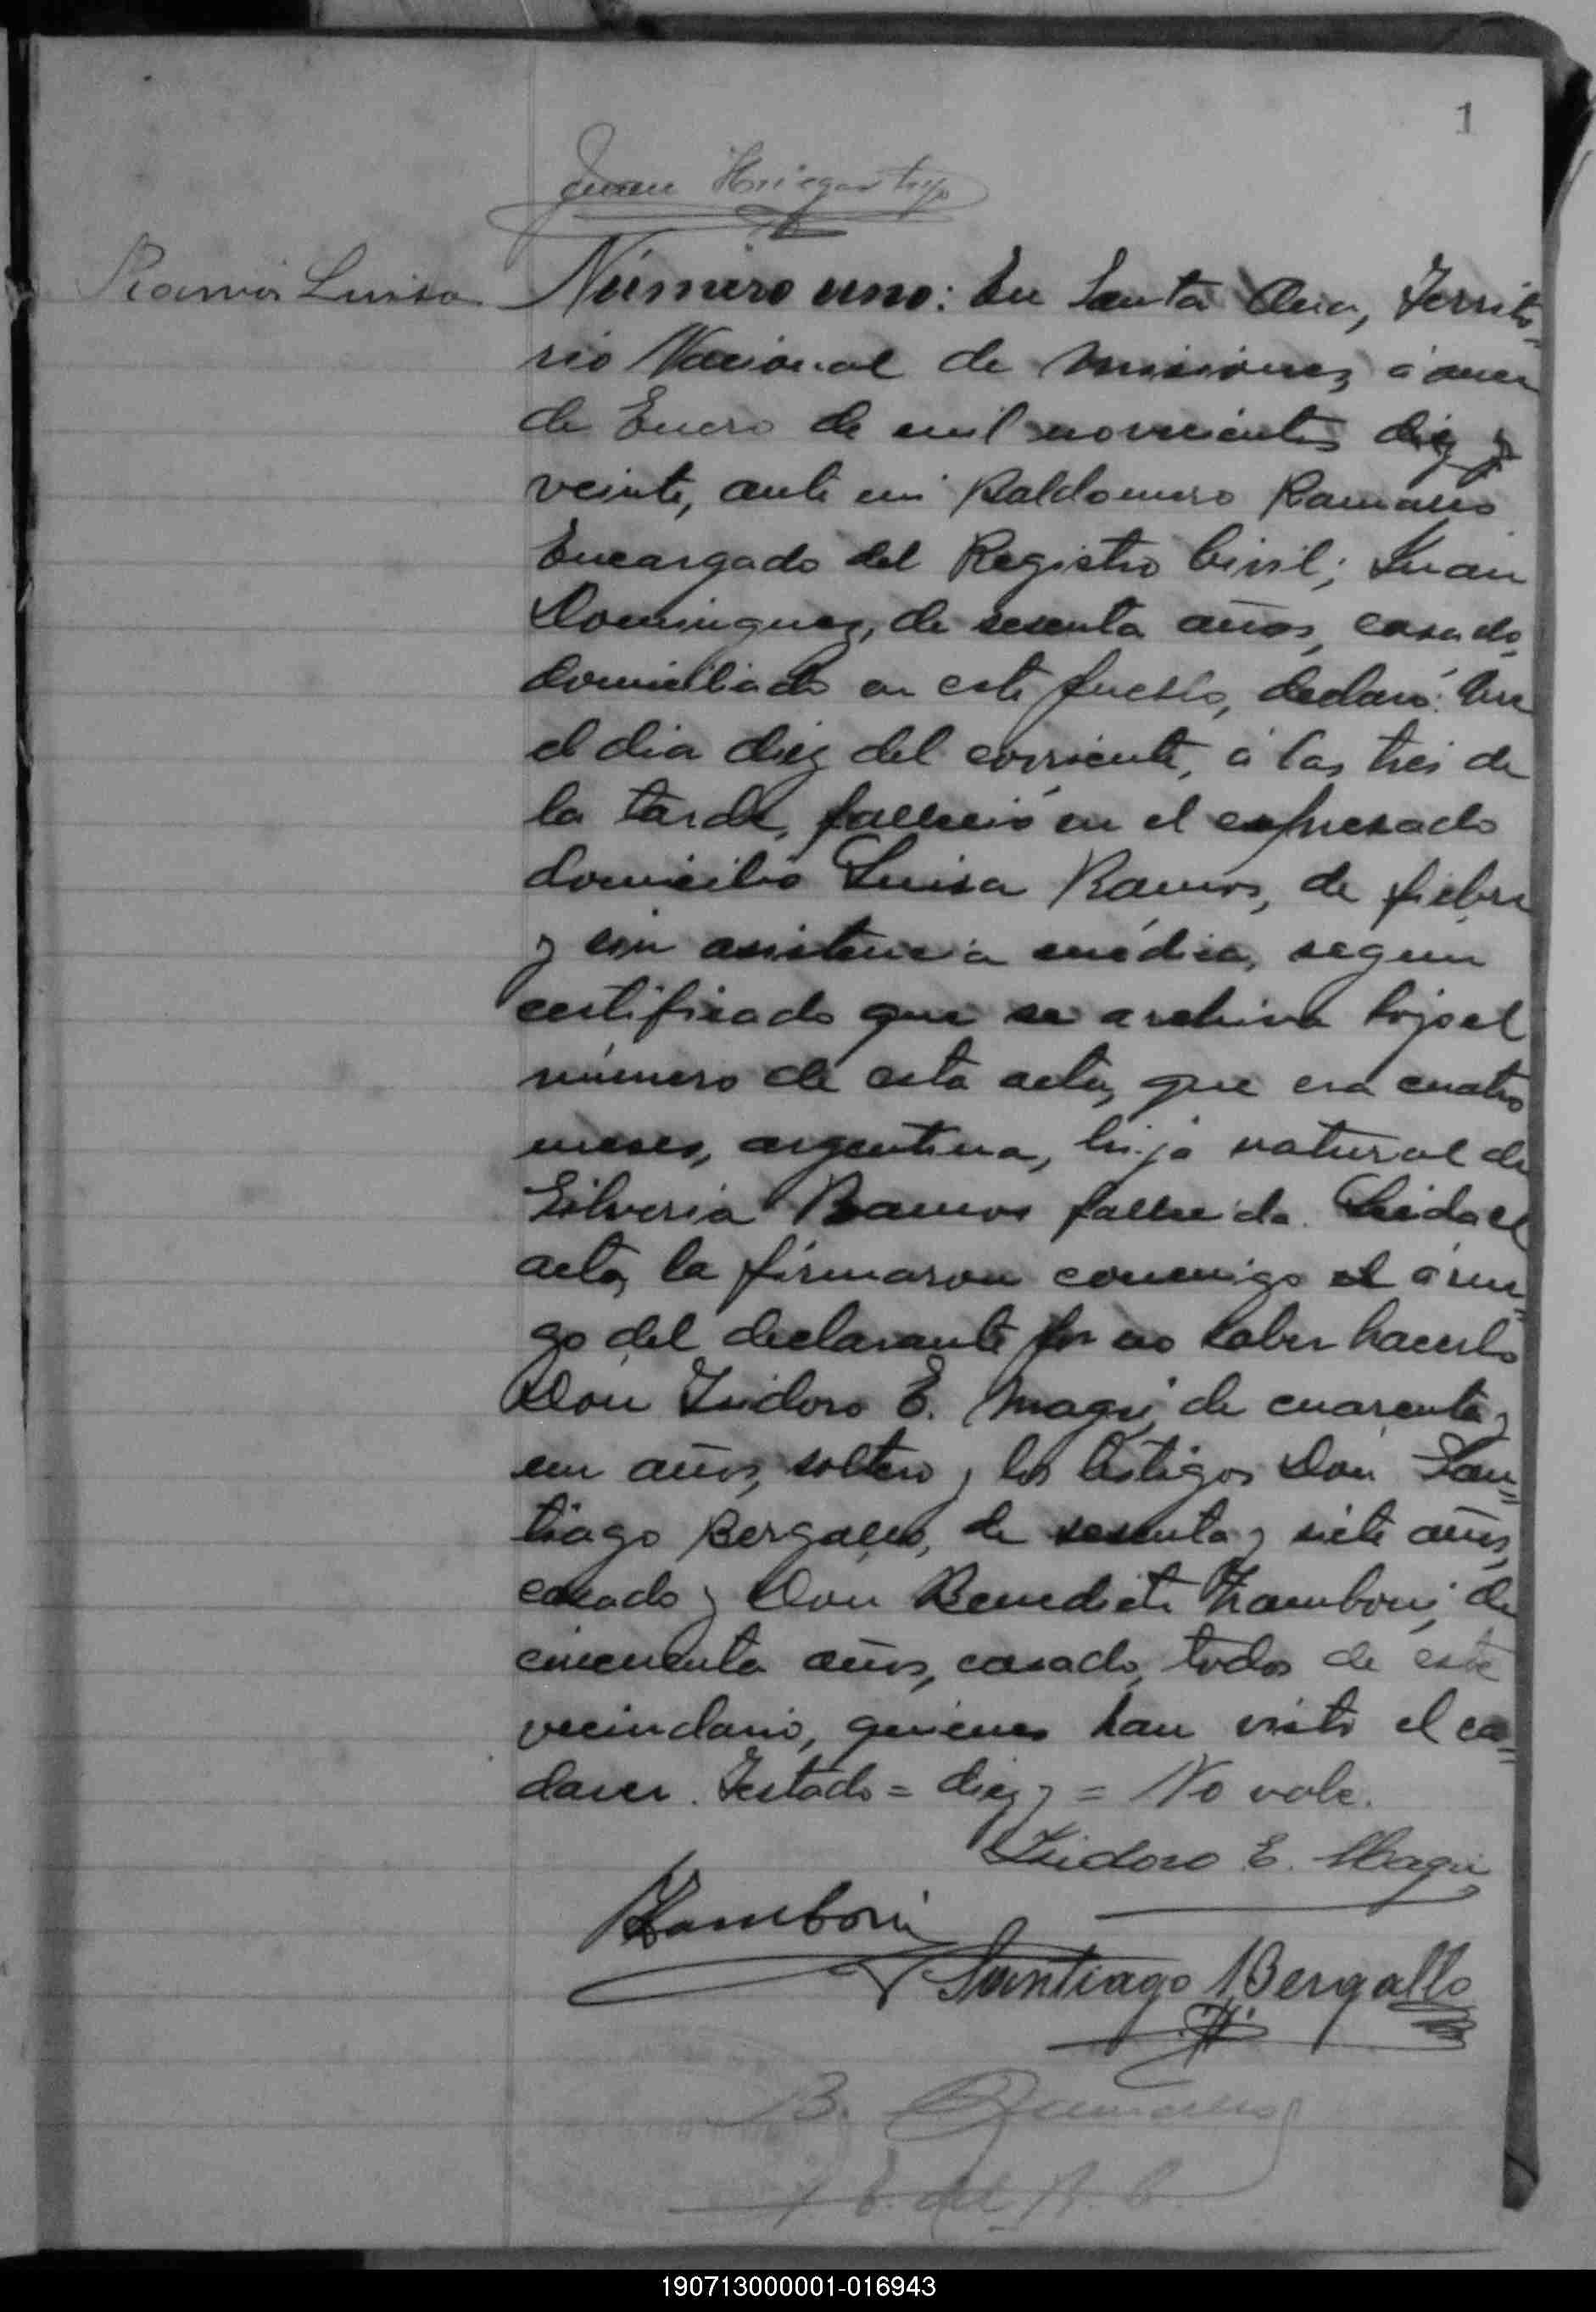 1
Juan
Ramos Luisa
Número uno: En Santa Ana, Territo-
rio Nacional de Misiones, á once
de Enero de mil novecientos diez y
veinte, ante mi Baldomero Ramallo
Encargado del Registro Civil; Juan
Dominguez, de sesenta años, casado,
domiciliado en este pueblo, declaró: Que
el dia diez del corriente, á las tres de
la tarde, falleció en el expresado
domicilio Luisa Ramos, de fiebre
y sin asistencia médica, segun
certificado que se archiva bajo el
número de esta acta, que era cuatro
meses, argentina, hija natural de
Silveria Ramos fallecida. Leida el
acta, la firmaron conmigo el á rue=
go del declarante por no saber hacerlo
Don Isidoro E. Magri, de cuarenta y
un años, soltero y los testigos Don San=
tiago Bergallo, de sesenta y siete años,
casado y Don Benedicto Zamboni, de
cincuenta años, casado, todos de este
vecindario, quienes han visto el ca=
daver. Testado = diez y = No vale.
Isidoro E. Magri
Zamboni
Santiago Bergallo
B. Ramallo
E. del R. C.
190713000001-016943